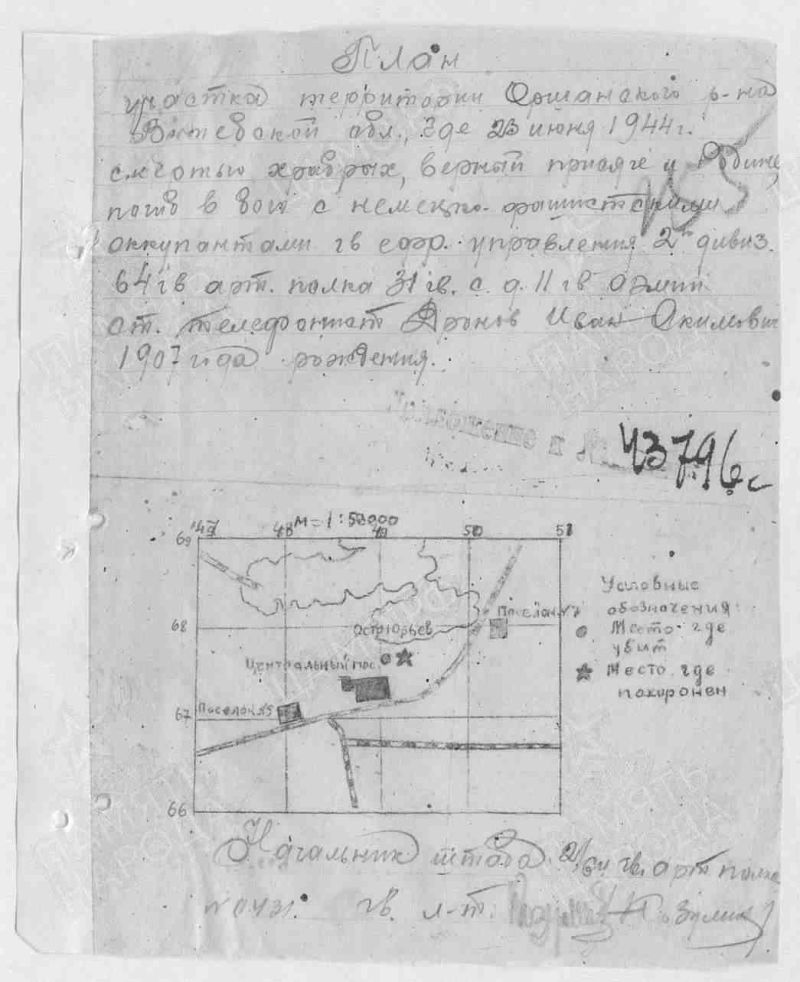 План
участка территории Оршанского р-на
Витебской обл., где 23 июня 1944 г.
смертью храбрых, верный присяге и Родине,
погиб в бою с немецко-фашистскими
оккупантами гв ефр. управления 2го дивиз.
64 гв арт. полка 31 гв. с. д. 11 гв армии
ст. телефонист Аронов Иван Акимович
1907 года рождения.
43796с
М = 1:50000
69 47 48 49 50 51
Поселок №7
68 Остюрьев
Центральный пос
Поселок №5
67
66
Условные
обозначения:
Место где
убит
Место где
похоронен
Начальник штаба 2/64 гв. арт полка
гв. л-т.